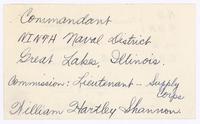 Commandant
NINTH Naval District
Great Lakes, Illinois.
Commission: Lieutenant - Supply
Corps
William Hartley Shannon